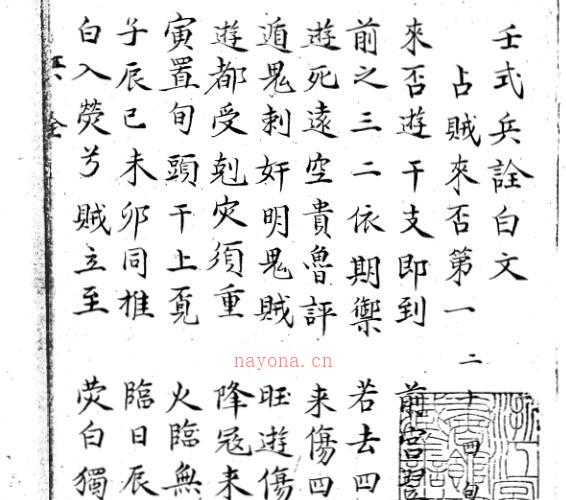 壬式兵詮白文
占賊來否第一 二十四
來否遊干支即到 前宫
前之三二依期禦 若去四
遊死遠空貴魯評 来傷四
遁鬼刺奸明鬼賊 旺遊傷
遊都受剋灾須重 降冦来
寅置旬頭干上覔 火臨無
子辰巳未卯同推 臨日辰
白入熒兮賊立至 熒白獨
nayona.cn